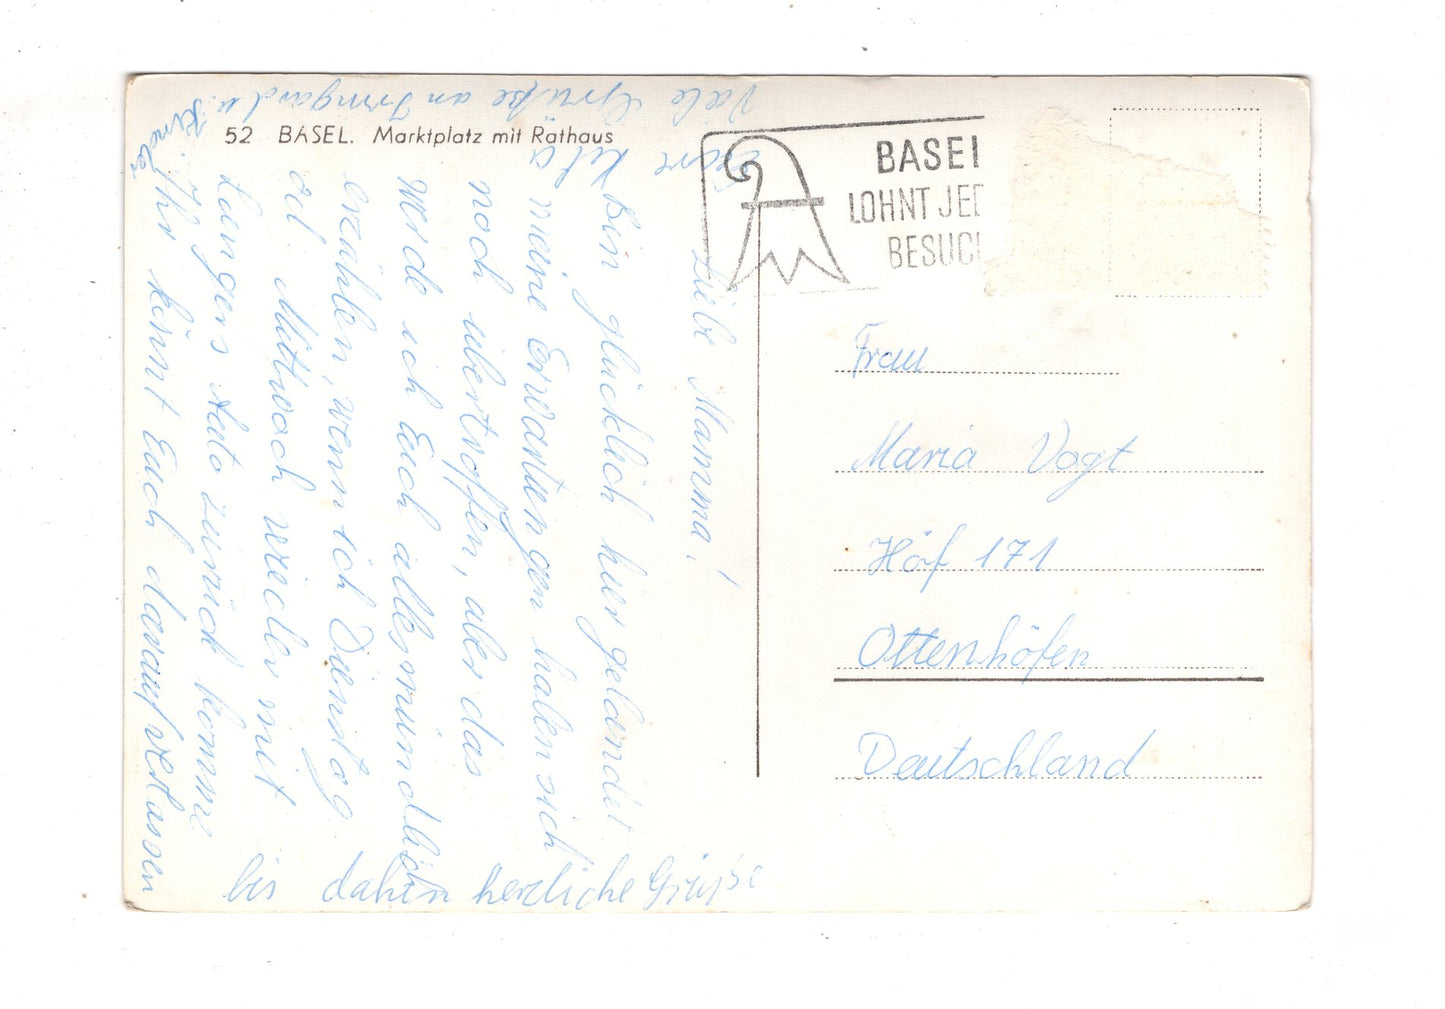 52 BASEL. Marktplatz mit Rathaus
BASEL
LOHNT JED
BESUCH
Liebe Mamma!
Bin glücklich hier gelandet.
meine Erwartungen haben sich
noch übertroffen, aber das
werde ich Euch alles mündlich
erzählen, wenn ich Dienstag
od Mittwoch wieder mit
Langers Auto zurück komme
Ihr könnt Euch darauf verlassen
bis dahin herzliche Grüße
Eure Rita
Viele Grüße an Irmgard u.
Kinder
Frau
Maria Vogt
Höf 171
Ottenhöfen
Deutschland